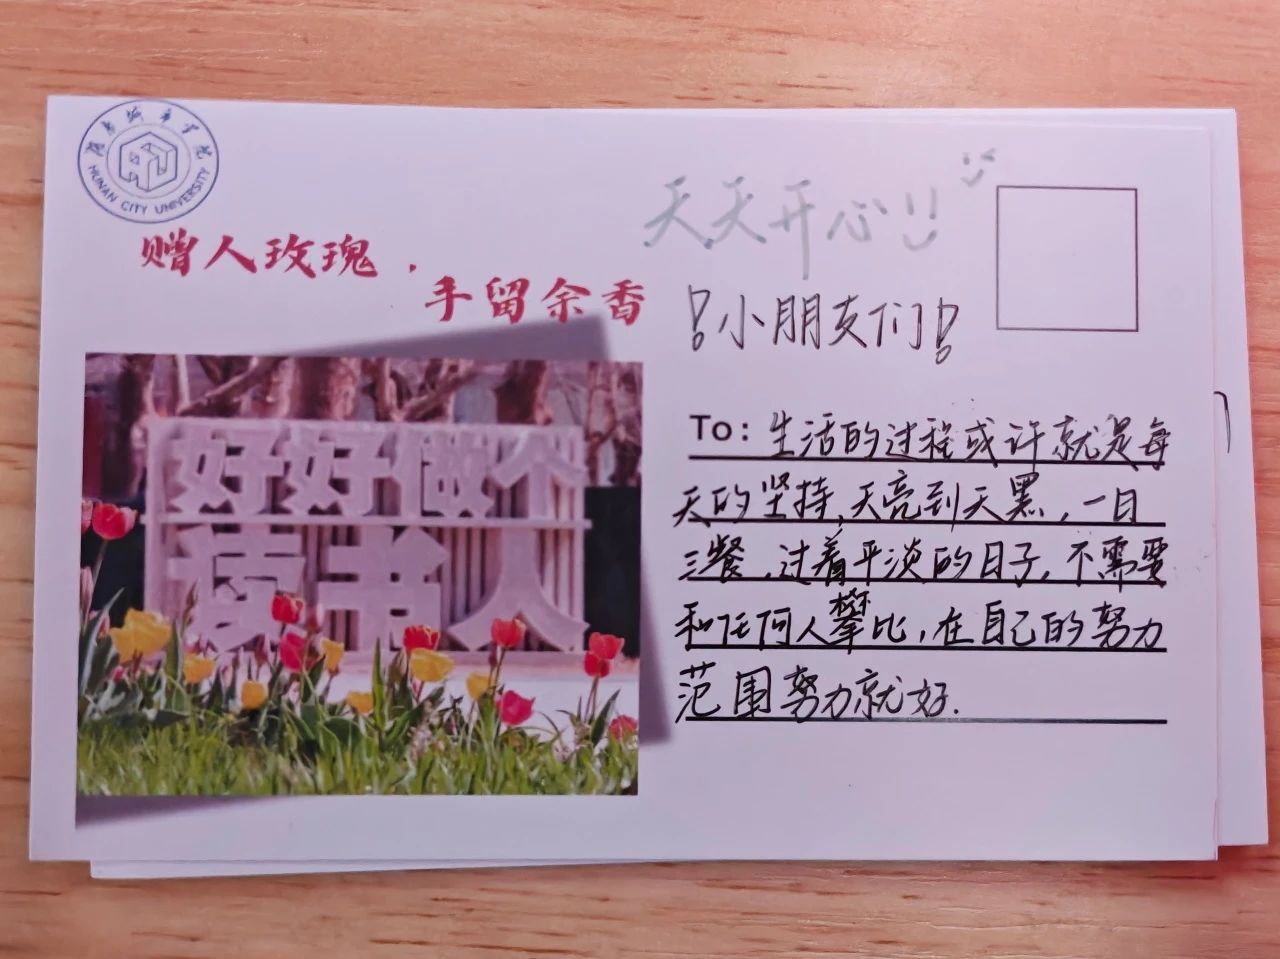 湖南城市学院
HUNAN CITY UNIVERSITY
赠人玫瑰，
手留余香
好好做个
读书人
天天开心!!
!小朋友们!
To: 生活的过程或许就是每
天的坚持,天亮到天黑,一日
三餐,过着平淡的日子,不需要
和任何人攀比,在自己的努力
范围努力就好.